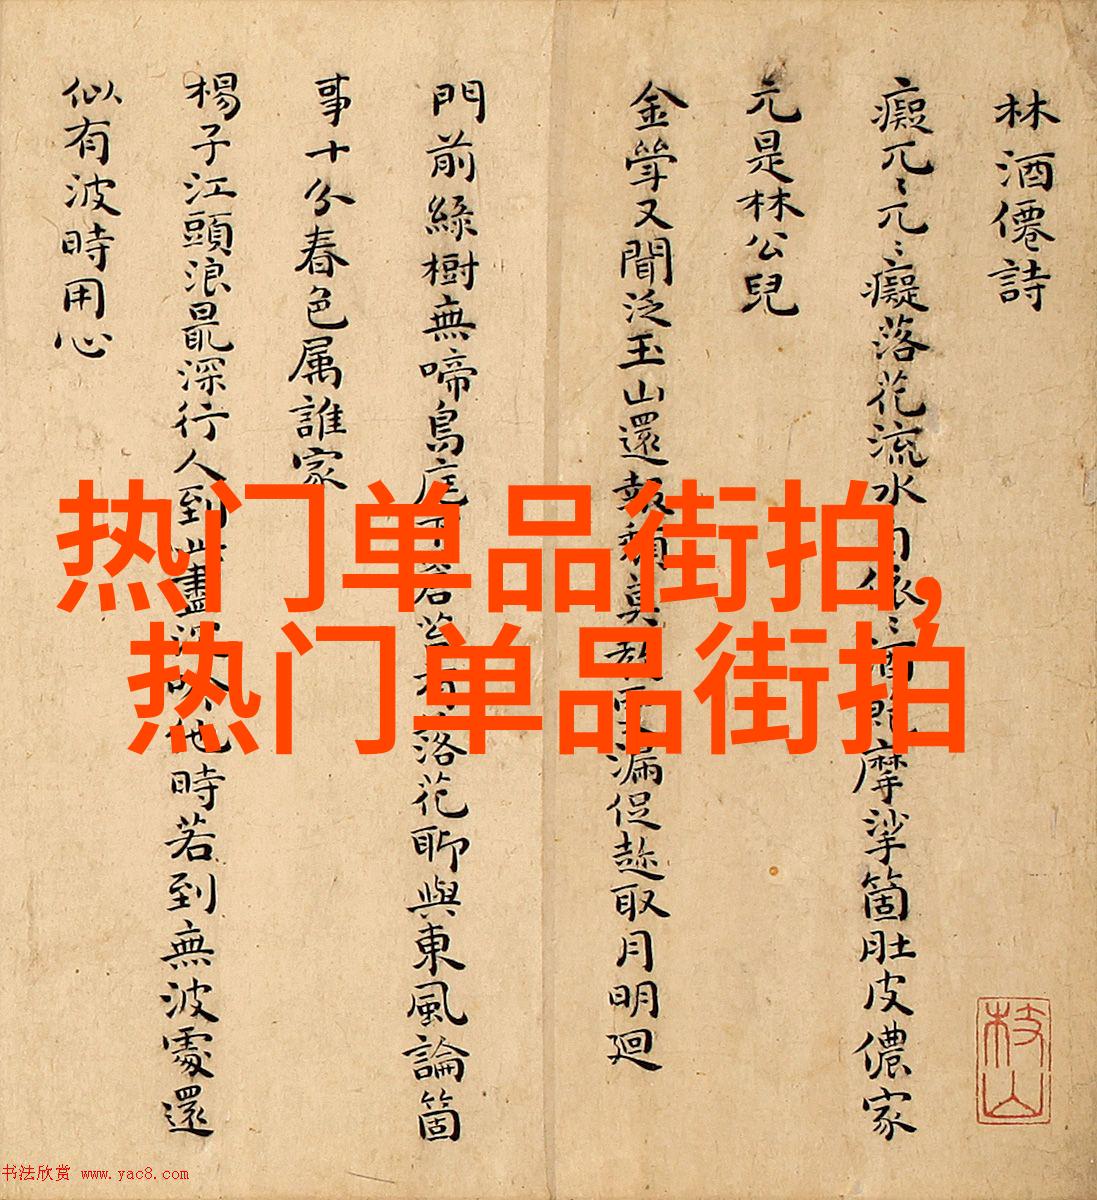 林酒僊詩
癡兀〻兀〻癡落花流水
摩挲箇肚皮儂家
元是林公兒
金觥又聞泛玉山還報頽莫
漏促趂取月明廻
門前綠樹無啼鳥庭下
落花聊與東風論箇
事十分春色属誰家
楊子江頭浪最深行人到此盡
他時若到無波處還
似有波時用心
枝山
热门单品街拍,
热门单品街拍
书法欣赏 www.yac8.com